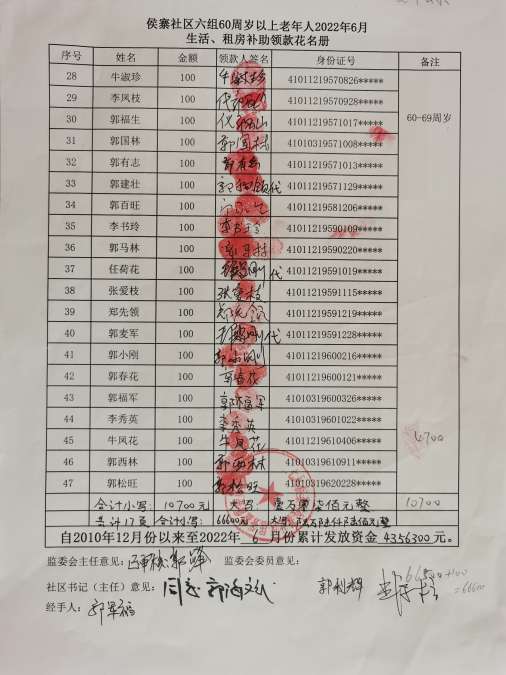 侯寨社区六组60周岁以上老年人2022年6月
生活、租房补助领款花名册
序号 姓名 金额 领款人签名 身份证号 备注
28 牛淑珍 100 牛淑珍 41011219570826*****
29 李凤枝 100 41011219570928*****
30 郭福生 100 41011219571017***** 60-69周岁
31 郭国林 100 郭国林 41010319571008*****
32 郭有志 100 郭有志 41011219571013*****
33 郭建壮 100 41011219571129*****
34 郭百旺 100 41011219581206*****
35 李书玲 100 李书玲 41011219590109*****
36 郭马林 100 郭马林 41011219590220*****
37 任荷花 100 41011219591019*****
38 张爱枝 100 张爱枝 41011219591115*****
39 郑先领 100 郑先领 41011219591219*****
40 郭麦军 100 41011219591228*****
41 郭小刚 100 郭小刚 41011219600216*****
42 郭春花 100 郭春花 41011219600121*****
43 郭福军 100 郭福军 41010319600326*****
44 李秀英 100 李秀英 41010319601022*****
45 牛凤花 100 牛凤花 41011219610406***** 4700
46 郭西林 100 郭西林 41010319610911*****
47 郭松旺 100 郭松旺 41010319620228*****
合计小写：10700元 大写 壹万零柒佰元整 10700
共计17页 合计小写：66600元 大写 陆万陆仟陆佰元整
自2010年12月份以来至2022年 6 月份累计发放资金 4356300元
监委会主任意见： 监委会委员意见：
社区书记（主任）意见： 同意
经手人： 郭军福